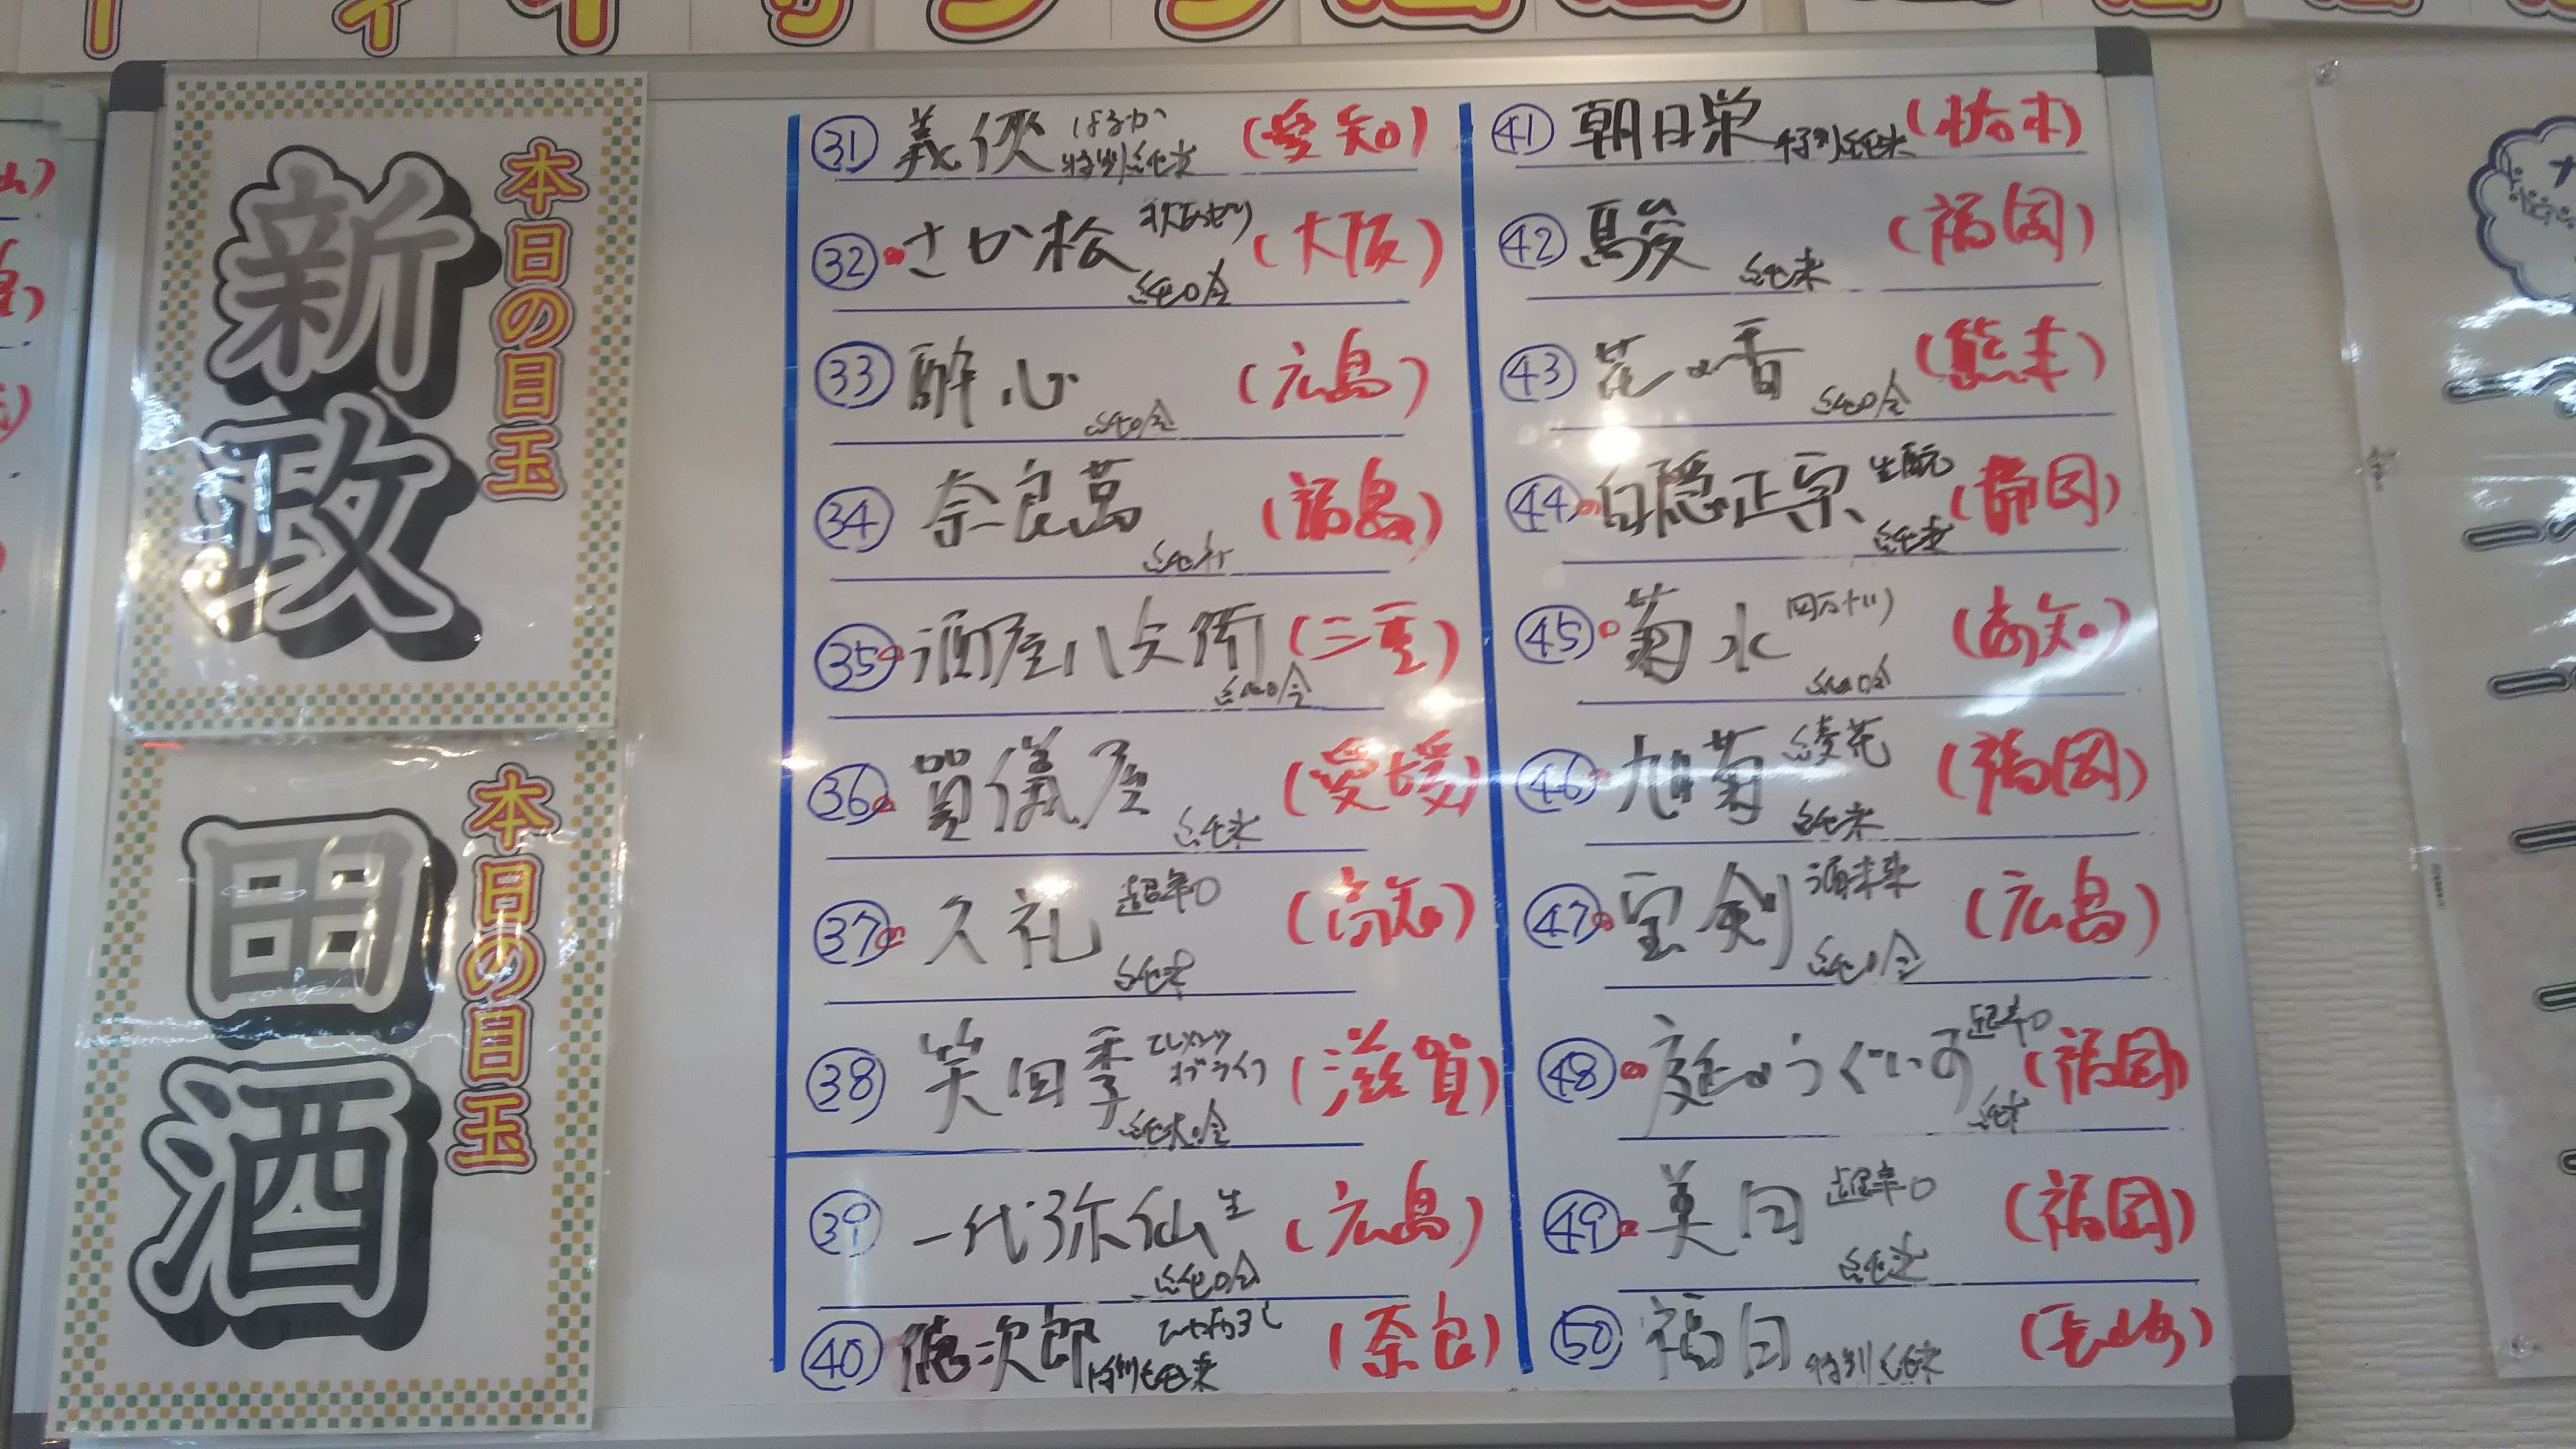 本日の目玉
新政
本日の目玉
田酒
㉛ 義侠 はるか 特別純米 (愛知)
㉜ さか松 秋あがり 純吟 (大阪)
㉝ 酔心 純吟 (広島)
㉞ 奈良萬 純米 (福島)
㉟ 酒屋八兵衛 純吟 (三重)
㊱ 賀儀屋 純米 (愛媛)
㊲ 久礼 超辛口 純米 (高知)
㊳ 笑四季 純大吟 (滋賀)
㊴ 一代弥山 生 純吟 (広島)
㊵ 徳次郎 特別純米 (奈良)
㊶ 朝日栄 特別純米 (栃木)
㊷ 駿 純米 (福岡)
㊸ 花の香 純吟 (熊本)
㊹ 白隠正宗 生酛 純米 (静岡)
㊺ 菊水 四万十川 純吟 (高知)
㊻ 旭菊 綾花 純米 (福岡)
㊼ 宝剣 酒未来 純吟 (広島)
㊽ 庭のうぐいす 超辛口 純米 (福岡)
㊾ 美田 超辛口 純米 (福岡)
㊿ 福田 特別純米 (長崎)